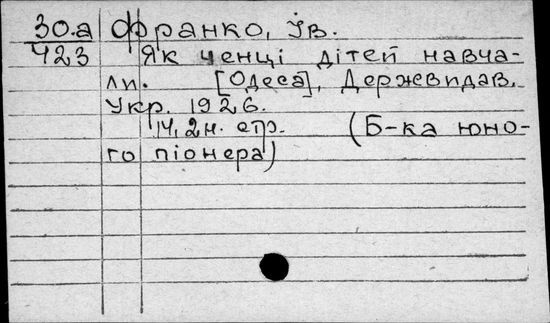 30.а Франко, Ів.
423 Як ченці дітей навча-
ли. [Одеса], Держевидав.
Укр. 1926.
14, 2н. стр. (Б-ка юно-
го піонера)